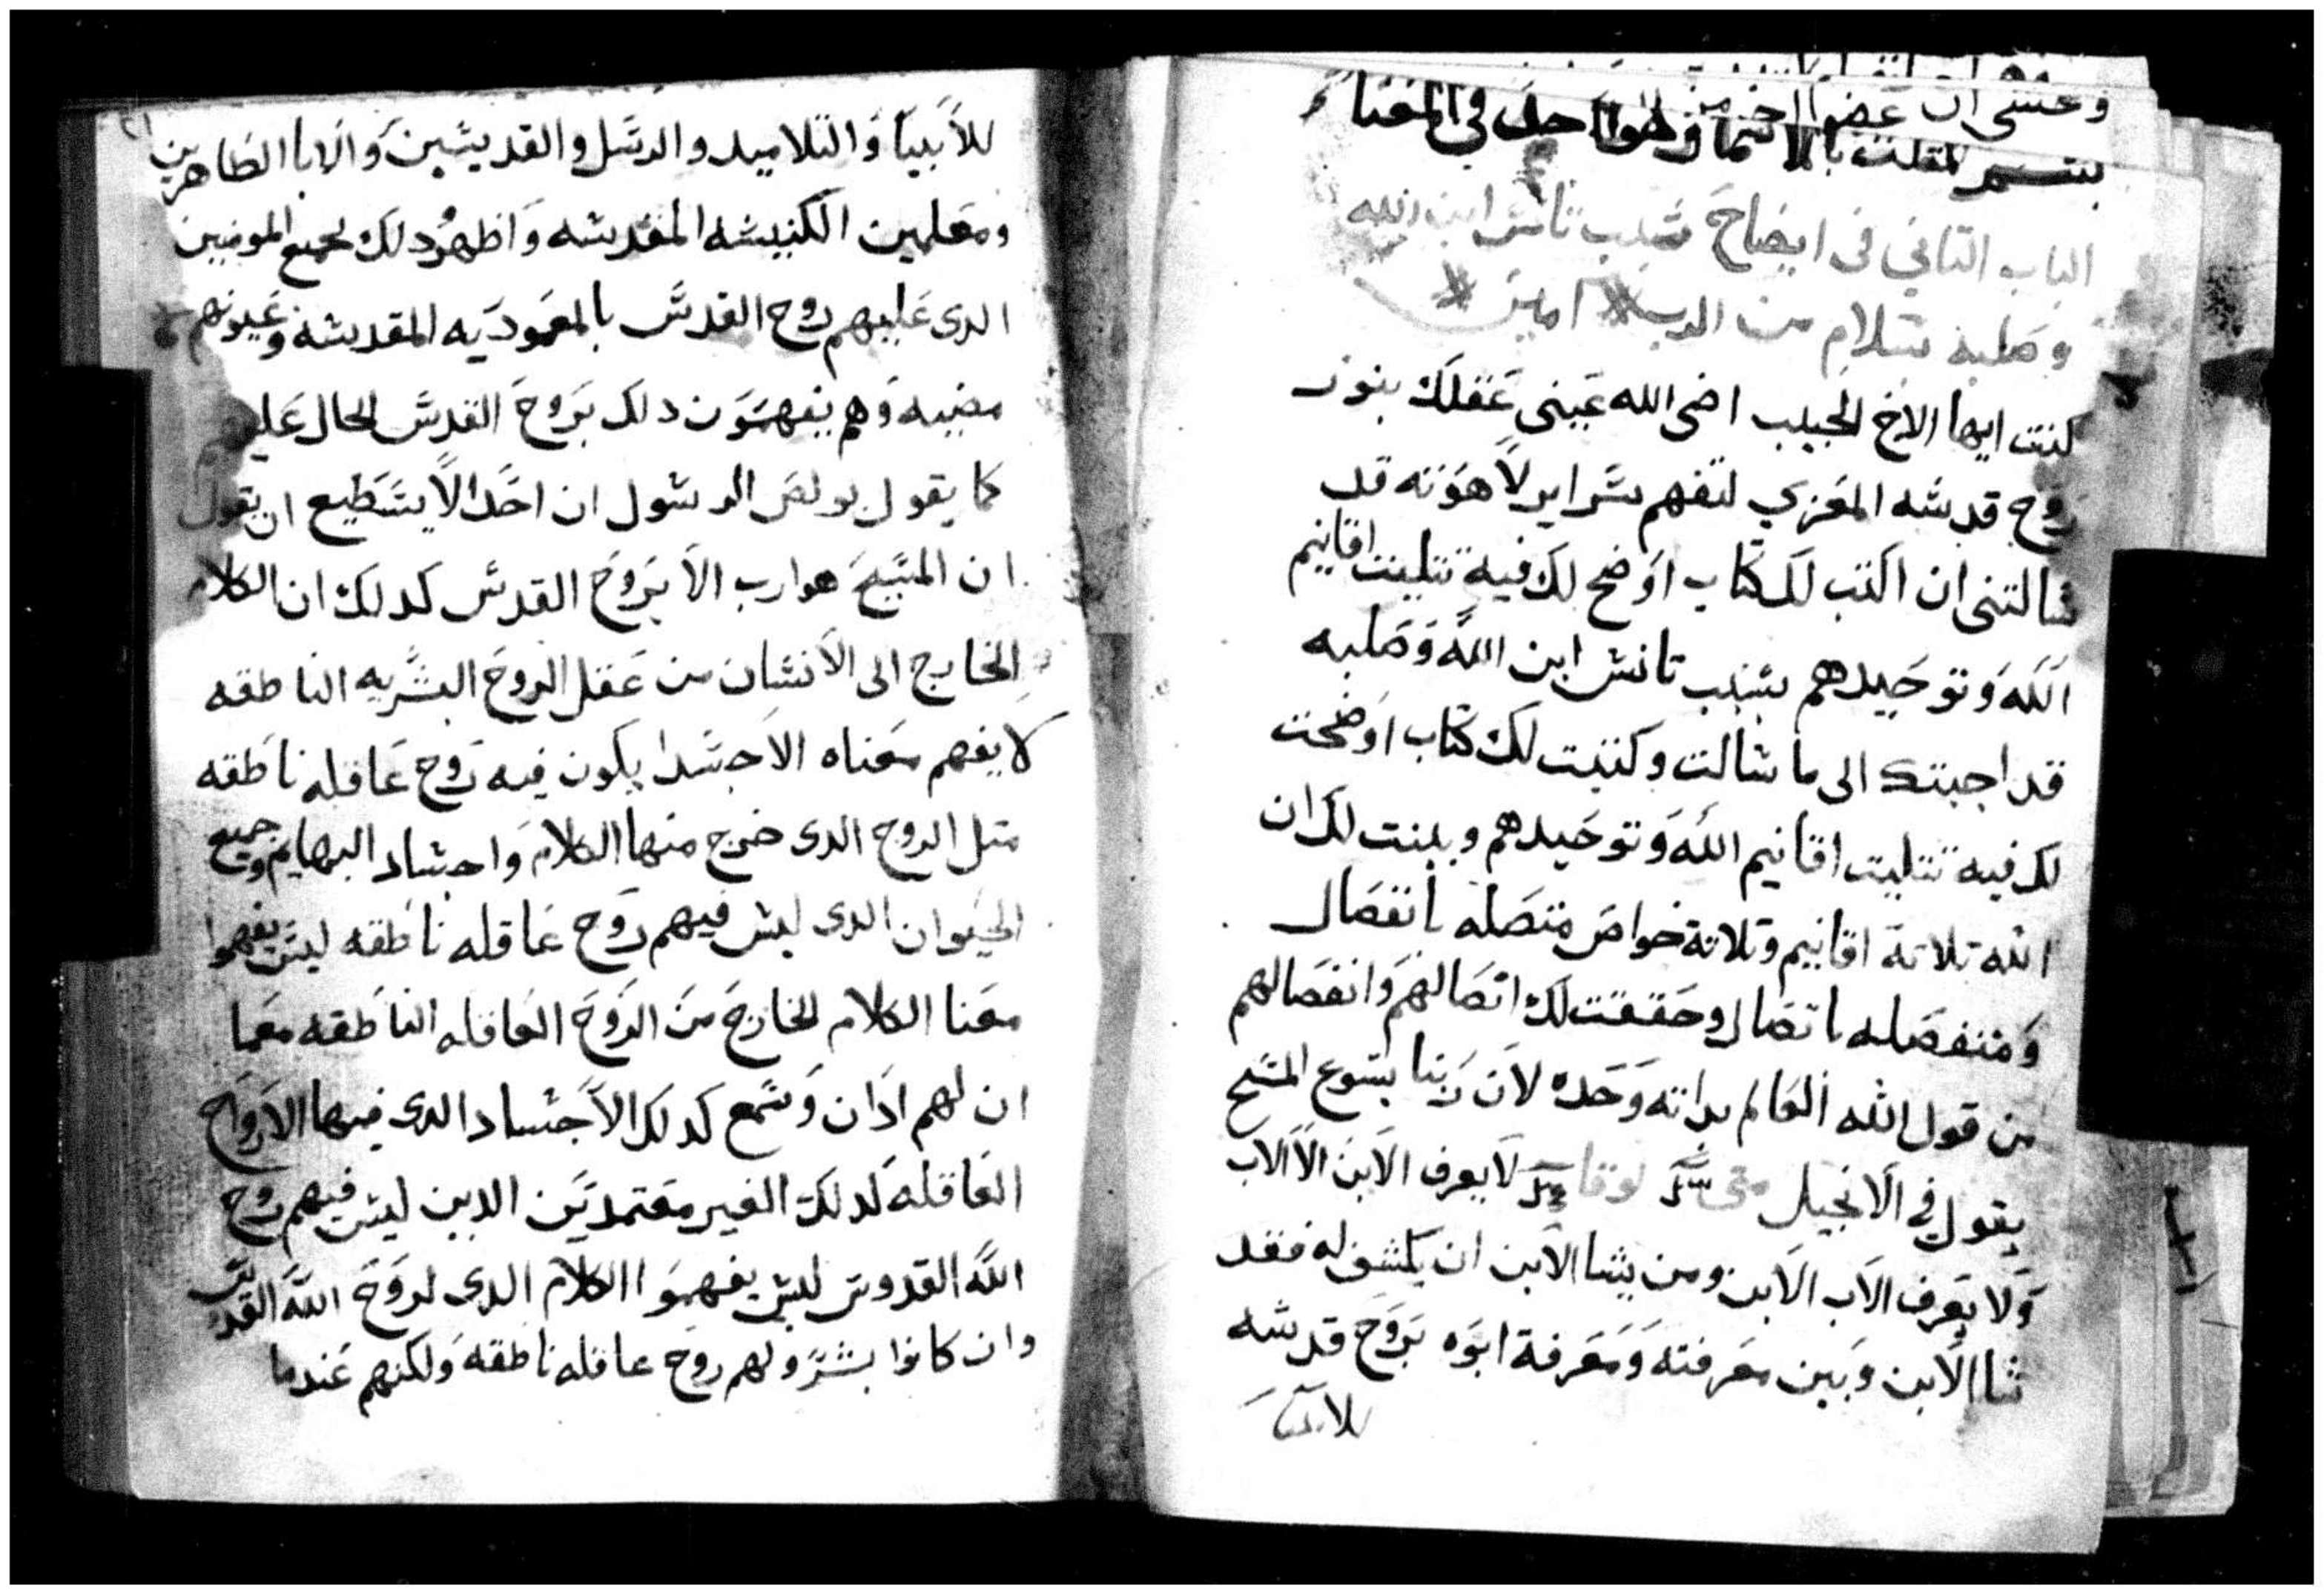 بشم المتلت بالاسما وهو واحد في المعنا
الباب التاني في ايضاح شبب تانش ابن الله
وصلبه بشلام من الرب امين
كنت ايها الاخ الحبيب اضى الله عيني عقلك بنور
روح قدشه المعزي لتفهم شراير لاهوته قد
شالتني ان اكتب لك كتاب اوضح لك فيه تتليت اقانيم
الله وتوحيدهم بشبب تانش ابن الله وصلبه
قد اجبتك الى ما شالت وكتبت لك كتاب اوضحت
لك فيه تتليت اقانيم الله وتوحيدهم وبينت لك ان
الله تلاتة اقانيم وتلاتة خواص متصله بانفصال
ومنفصله باتصال وحققت لك اتصالهم وانفصالهم
من قول الله العالم بداته وحده لان ربنا يشوع المشيح
يقول في الانجيل متى لوقا لا يعرف الابن الا الاب
ولا يعرف الاب الابن ومن يشا الابن ان يكشف له فقد
شا الابن وبين معرفته ومعرفة ابوه بروح قدشه
للانبيا
للانبيا والتلاميد والرشل والقديشين والابا الطاهرين
ومعلمين الكنيشه المقدشه واظهر دلك لجميع المومنين
الدى عليهم روح القدش بالمعموديه المقدشه وعيونهم
مضييه وهم يفهمون دلك بروح القدش الحال عليهم
كما يقول بولص الرشول ان احدا لا يشتطيع ان يقول
ان المشيح هو ارب الا بروح القدش كدلك ان الكلام
الخارج الى الانشان من عقل الروح البشريه الناطقه
لا يفهم معناه الا جشدا يكون فيه روح عاقله ناطقه
متل الروح الدى خرج منها الكلام واجشاد البهايم وجميع
الحيوان الدى ليش فيهم روح عاقله ناطقه ليش يفهموا
معنا الكلام الخارج من الروح العاقله الناطقه معما
ان لهم ادان وشمع كدلك الاجشاد الدى فيها الارواح
العاقله كدلك الغير معتمدين الدين ليش فيهم روح
الله القدوش ليش يفهموا الكلام الدى لروح الله القدش
وان كانوا بشر ولهم روح عاقله ناطقه ولكنهم عندما